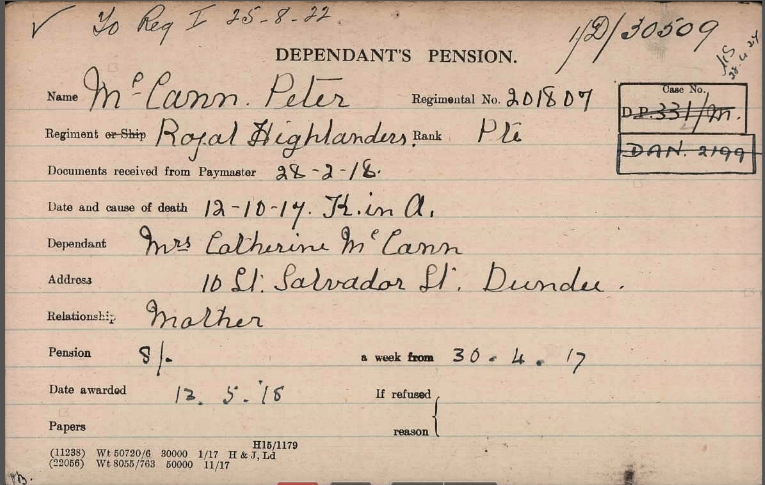 ✓ To Reg I 25-8-22
1/D/30509
DEPENDANT'S PENSION.
Name McCann. Peter Regimental No. 201807
Case No.
D.P. 331/M.
DAN. 2199
Regiment or Ship Royal Highlanders. Rank Pte
Documents received from Paymaster 28-2-18.
Date and cause of death 12-10-17. K. in A.
Dependant Mrs Catherine McCann
Address 10 St. Salvador St. Dundee.
Relationship Mother
Pension 8/- a week from 30.4.17
Date awarded 12.5.18 If refused
Papers reason
H15/1179
(11238) Wt 50720/6 30000 1/17 H & J, Ld
(22056) Wt 8055/763 50000 11/17